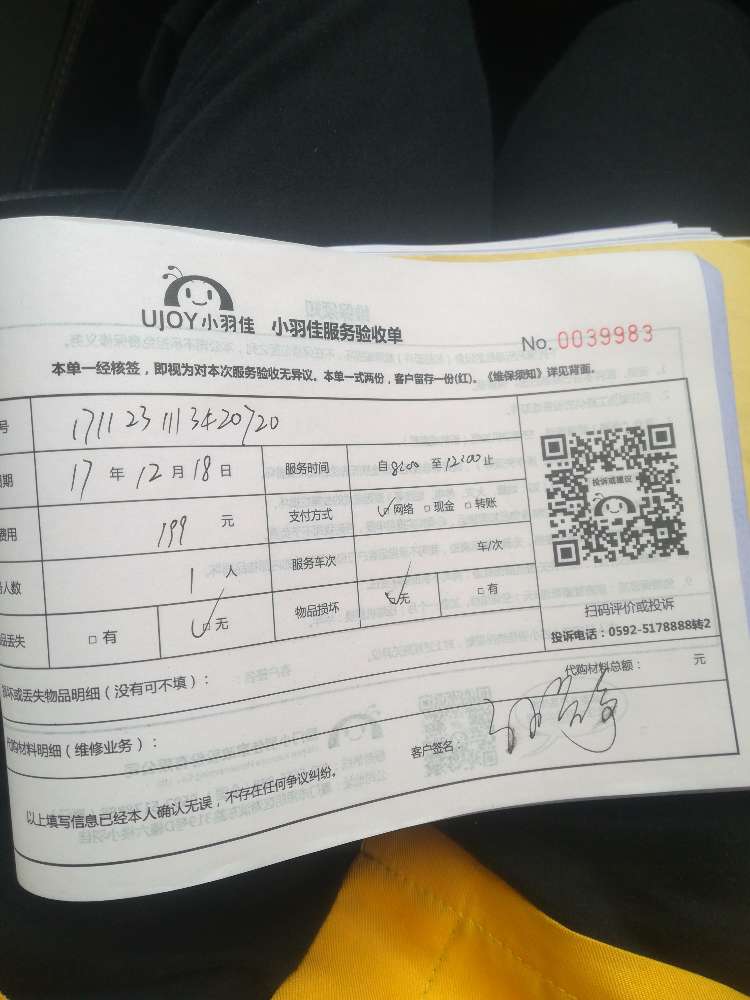 UJOY小羽佳 小羽佳服务验收单
No. 0039983
本单一经核签，即视为对本次服务验收无异议。本单一式两份，客户留存一份(红)。《维保须知》详见背面。
号 1711231113420720
期 17 年 12 月 18 日 服务时间 自 8:00 至 12:00 止
费用 199 元 支付方式 ☑网络 □现金 □转账
人数 1 人 服务车次 车/次
品丢失 □有 ☑无 物品损坏 ☑无 □有
投诉或建议
扫码评价或投诉
投诉电话：0592-5178888转2
损坏或丢失物品明细（没有可不填）：
代购材料总额： 元
代购材料明细（维修业务）：
客户签名：
以上填写信息已经本人确认无误，不存在任何争议纠纷。